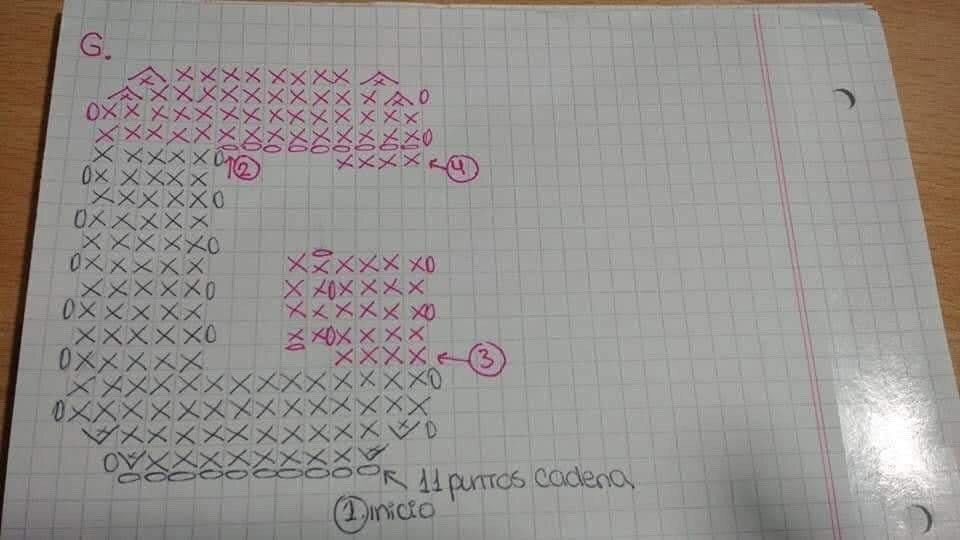 G.
2
4
3
11 puntos cadena
1. inicio